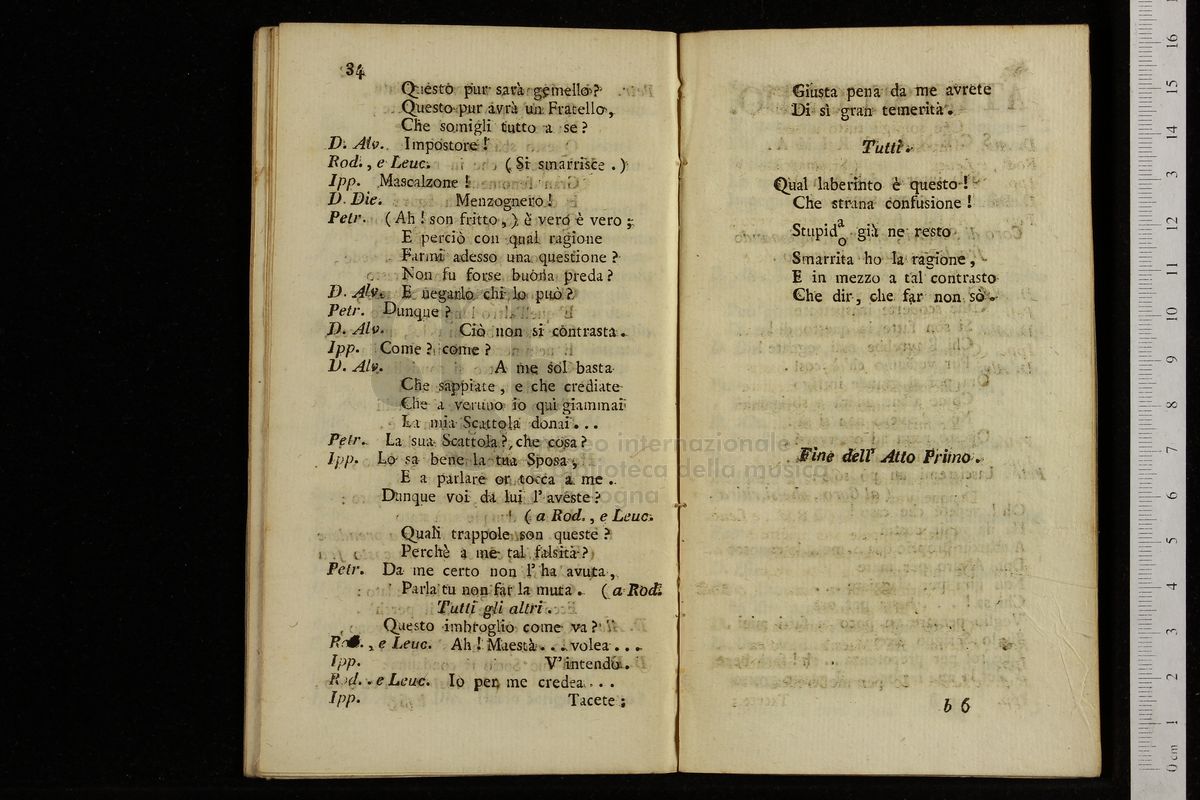 34
Questo pur sarà gemello?
Questo pur avrà un Fratello,
Che somigli tutto a se?
D. Alv. Impostore!
Rod., e Leuc. (Si smarrisce.)
Ipp. Mascalzone!
D. Die. Menzognero!
Petr. (Ah! son fritto,) è vero è vero;
E perciò con qual ragione
Farmi adesso una questione?
Non fu forse buona preda?
D. Alv. E negarlo chi lo può?
Petr. Dunque?
D. Alv. Ciò non si contrasta.
Ipp. Come? come?
D. Alv. A me sol basta
Che sappiate, e che crediate
Che a veruno io qui giammai
La mia Scattola donai...
Petr. La sua Scattola?, che cosa?
Ipp. Lo sa bene la tua Sposa,
E a parlare or tocca a me.
Dunque voi da lui l' aveste?
(a Rod., e Leuc.
Quali trappole son queste?
Perchè a me tal falsità?
Petr. Da me certo non l' ha avuta,
Parla tu non far la muta. (a Rod.
Tutti gli altri.
Questo imbroglio come va?
Rod., e Leuc. Ah! Maestà... volea...
Ipp. V' intendo.
Rod. e Leuc. Io per me credea...
Ipp. Tacete;
Giusta pena da me avrete
Di sì gran temerità.
Tutti.
Qual laberinto è questo!
Che strana confusione!
Stupid a o già ne resto
Smarrita ho la ragione,
E in mezzo a tal contrasto
Che dir, che far non sò.
Fine dell' Atto Primo.
b 6
museo internazionale
e biblioteca della musica
bologna
0 cm 1 2 3 4 5 6 7 8 9 10 11 12 13 14 15 16